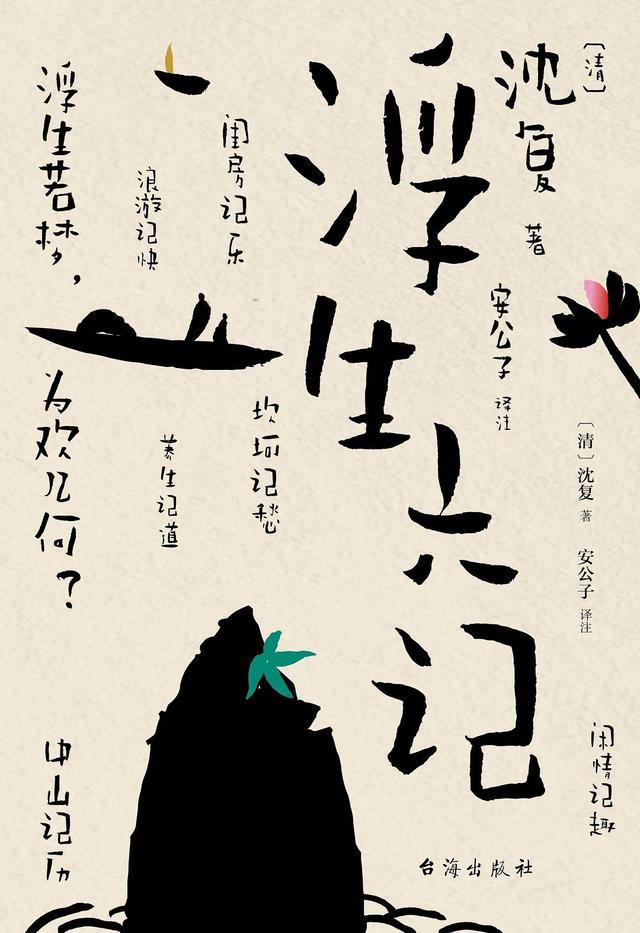 〔清〕
沈复 著
浮生六记
安公子 译注
〔清〕沈复 著 安公子 译注
闲情记趣
闺房记乐
坎坷记愁
浪游记快
养生记道
浮生若梦，
为欢几何？
中山记历
台海出版社